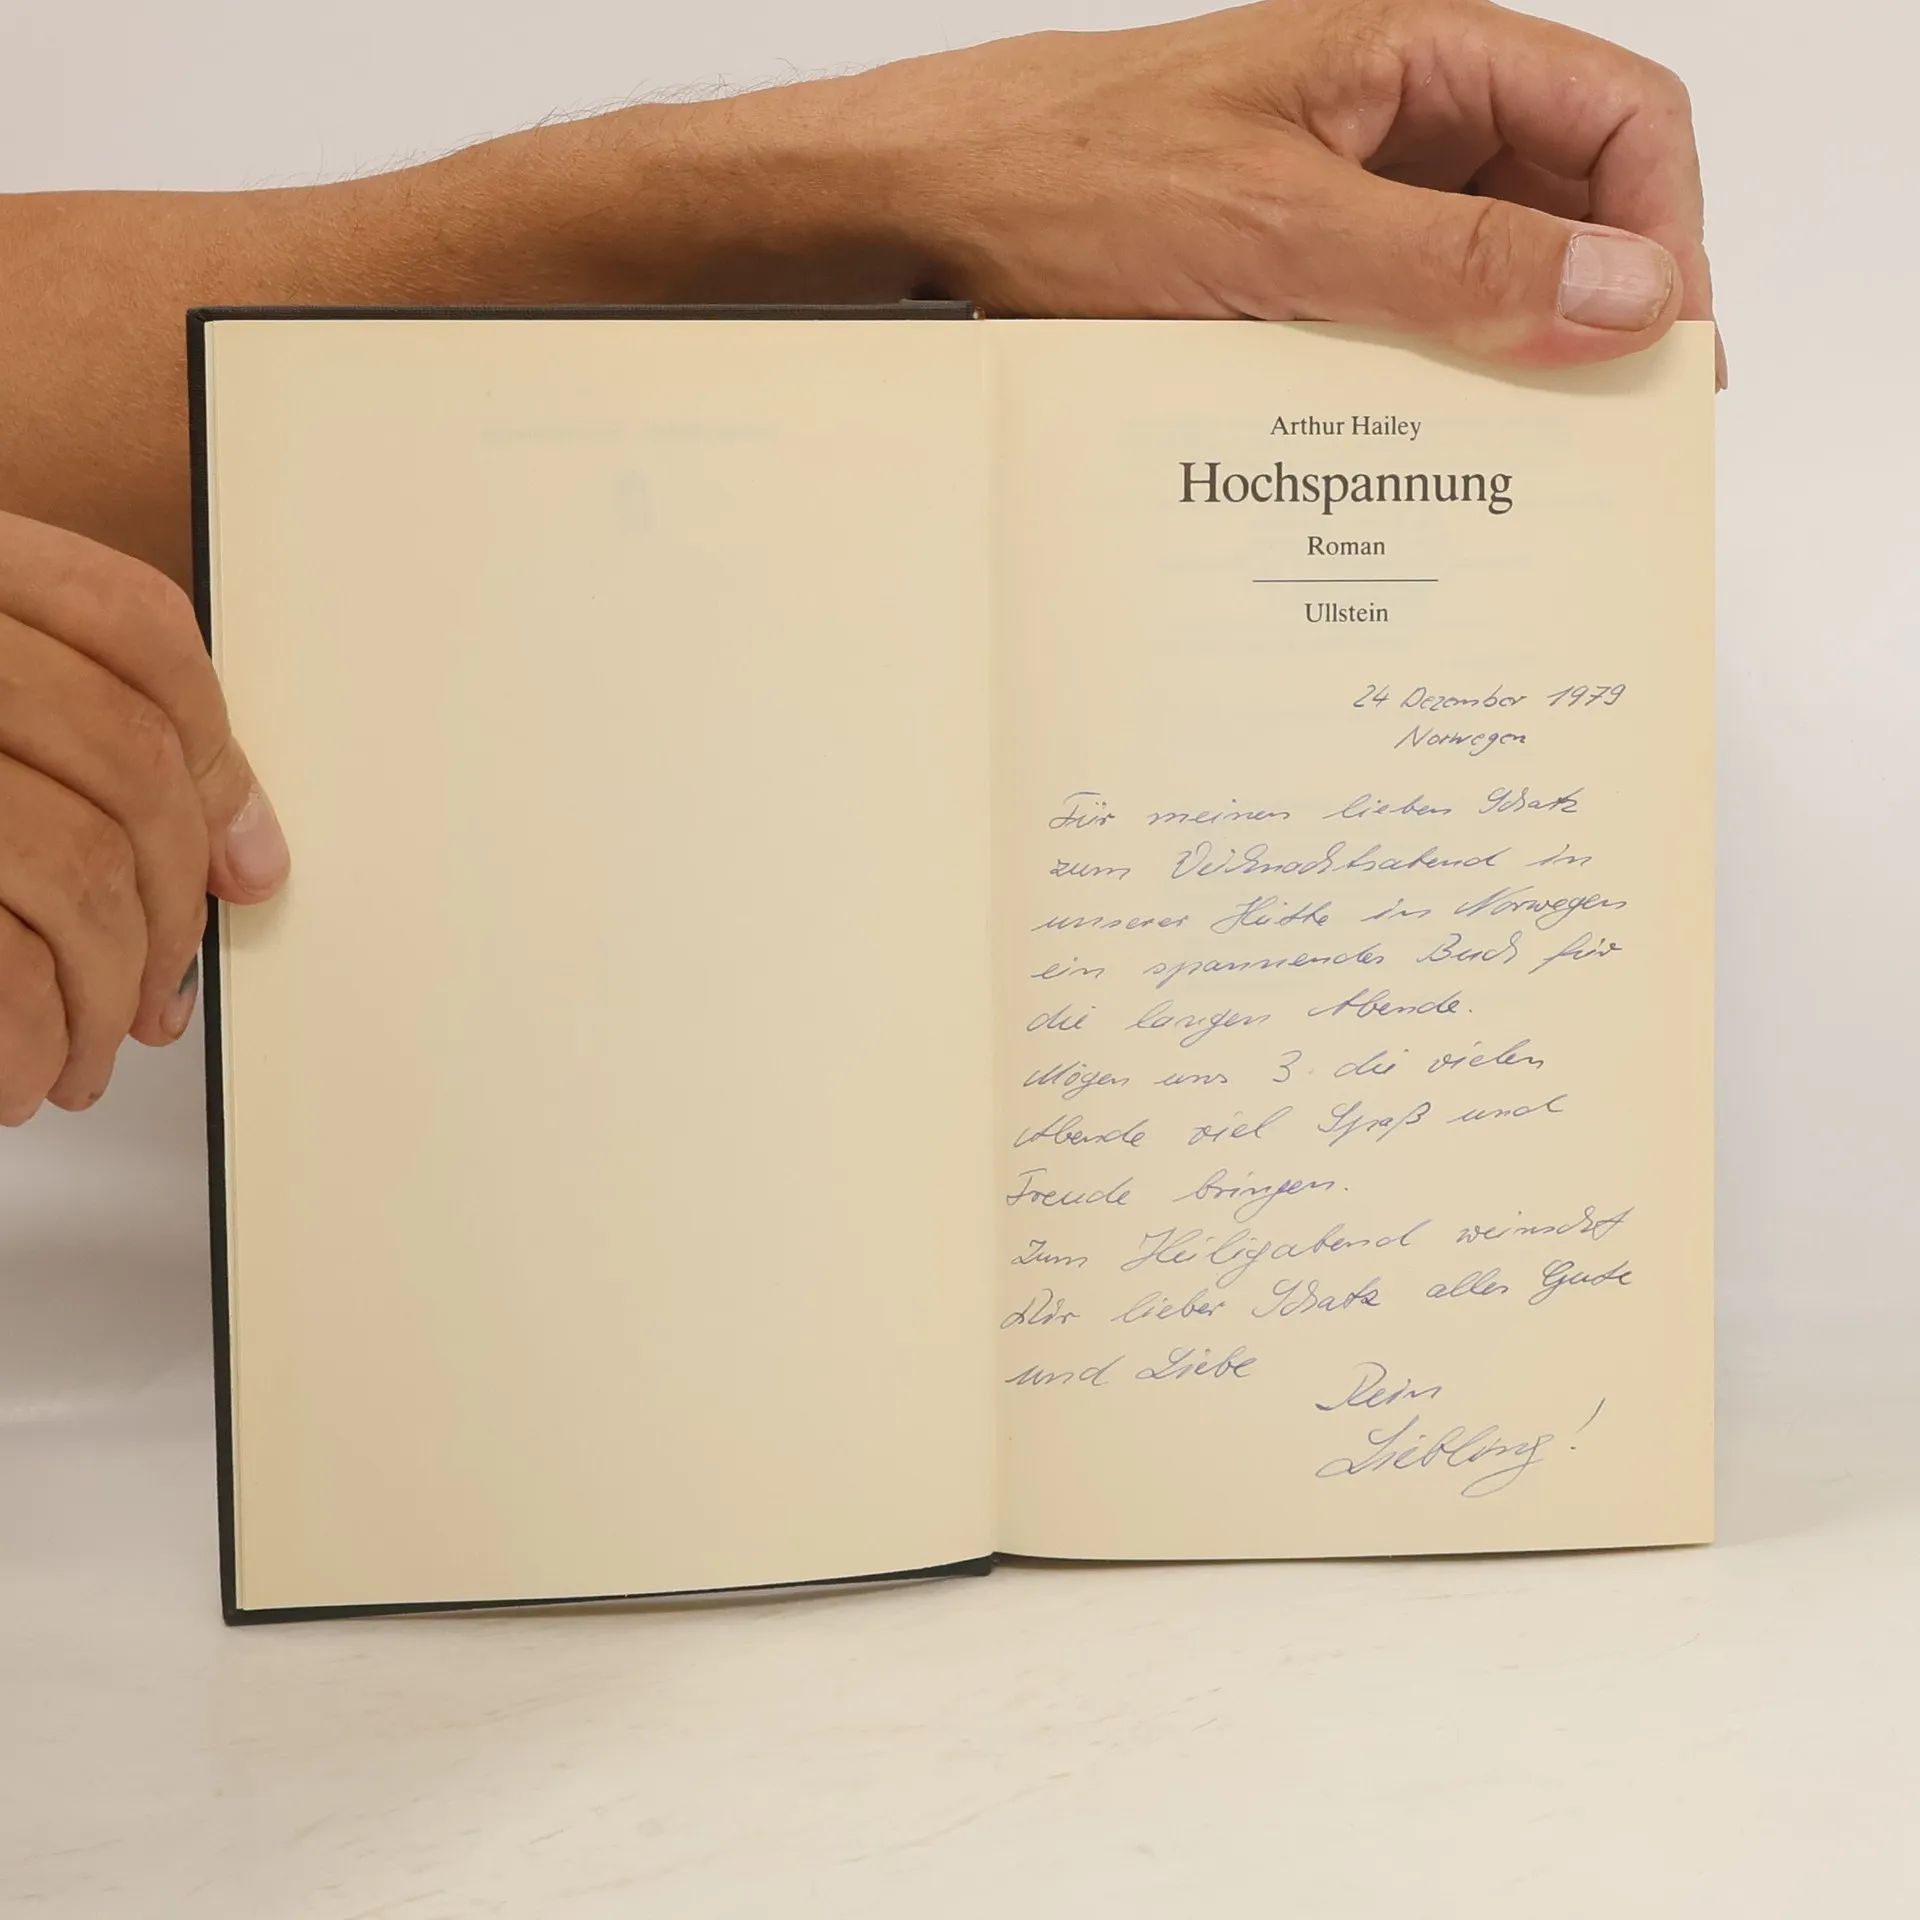 Arthur Hailey
Hochspannung
Roman
Ullstein
24 Dezember 1979
Norwegen
Für meinen lieben Schatz
zum Weihnachtsabend in
unserer Hütte in Norwegen
ein spannendes Buch für
die langen Abende.
Mögen uns 3 die vielen
Abende viel Spaß und
Freude bringen.
Zum Heiligabend wünscht
Dir lieber Schatz alles Gute
und Liebe
Dein
Liebling!